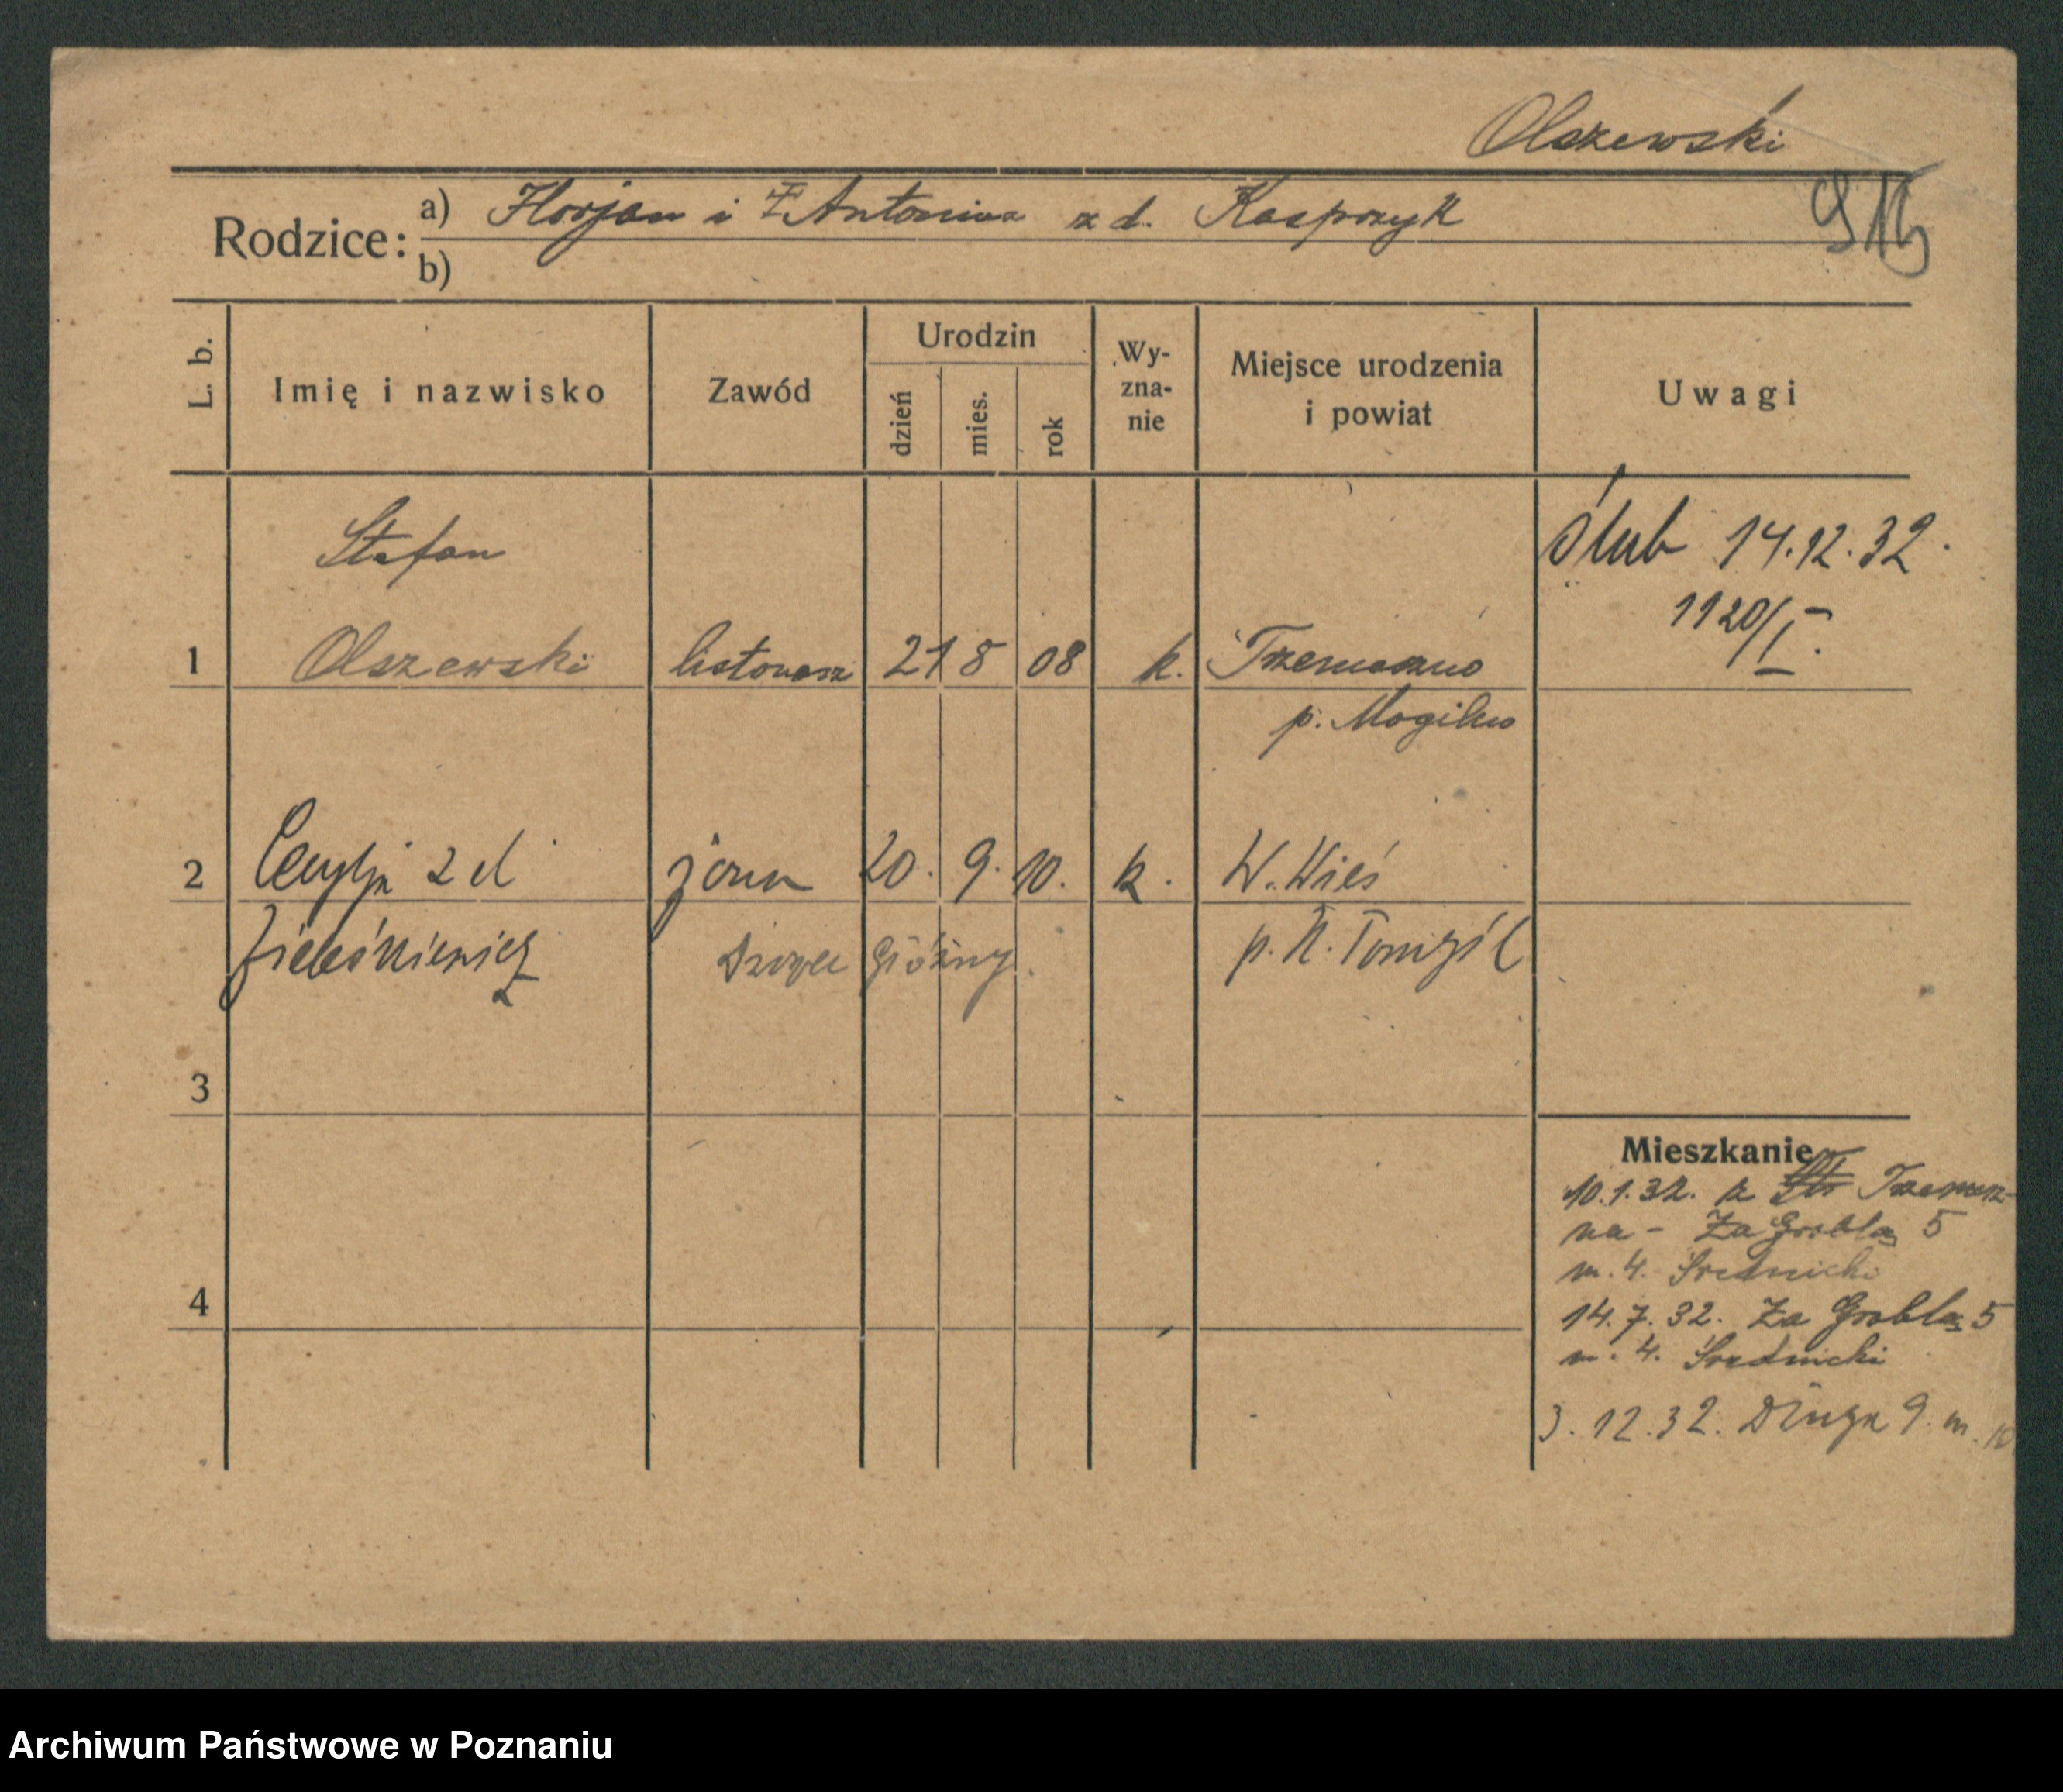 Olszewski
Rodzice: a) Florjan i Antonina z d. Kasprzyk
b)
L. b. Imię i nazwisko Zawód Urodzin dzień mies. rok Wy-zna-nie Miejsce urodzenia i powiat Uwagi
Stefan
Ślub 14.12.32.
1120/I.
1 Olszewski listonosz 21 8 08 k. Trzemeszno
p. Mogilno
2 Cecylja z d żona 20. 9. 10. k. W. Wieś
p. N. Tomyśl
3
Mieszkanie
10.1.32. z Trzemesz-
na - Za Groblą 5
m. 4. Srednicki
4
14.7.32. Za Groblą 5
m. 4. Srednicki
3. 12. 32. Długa 9. m. 10
Archiwum Państwowe w Poznaniu